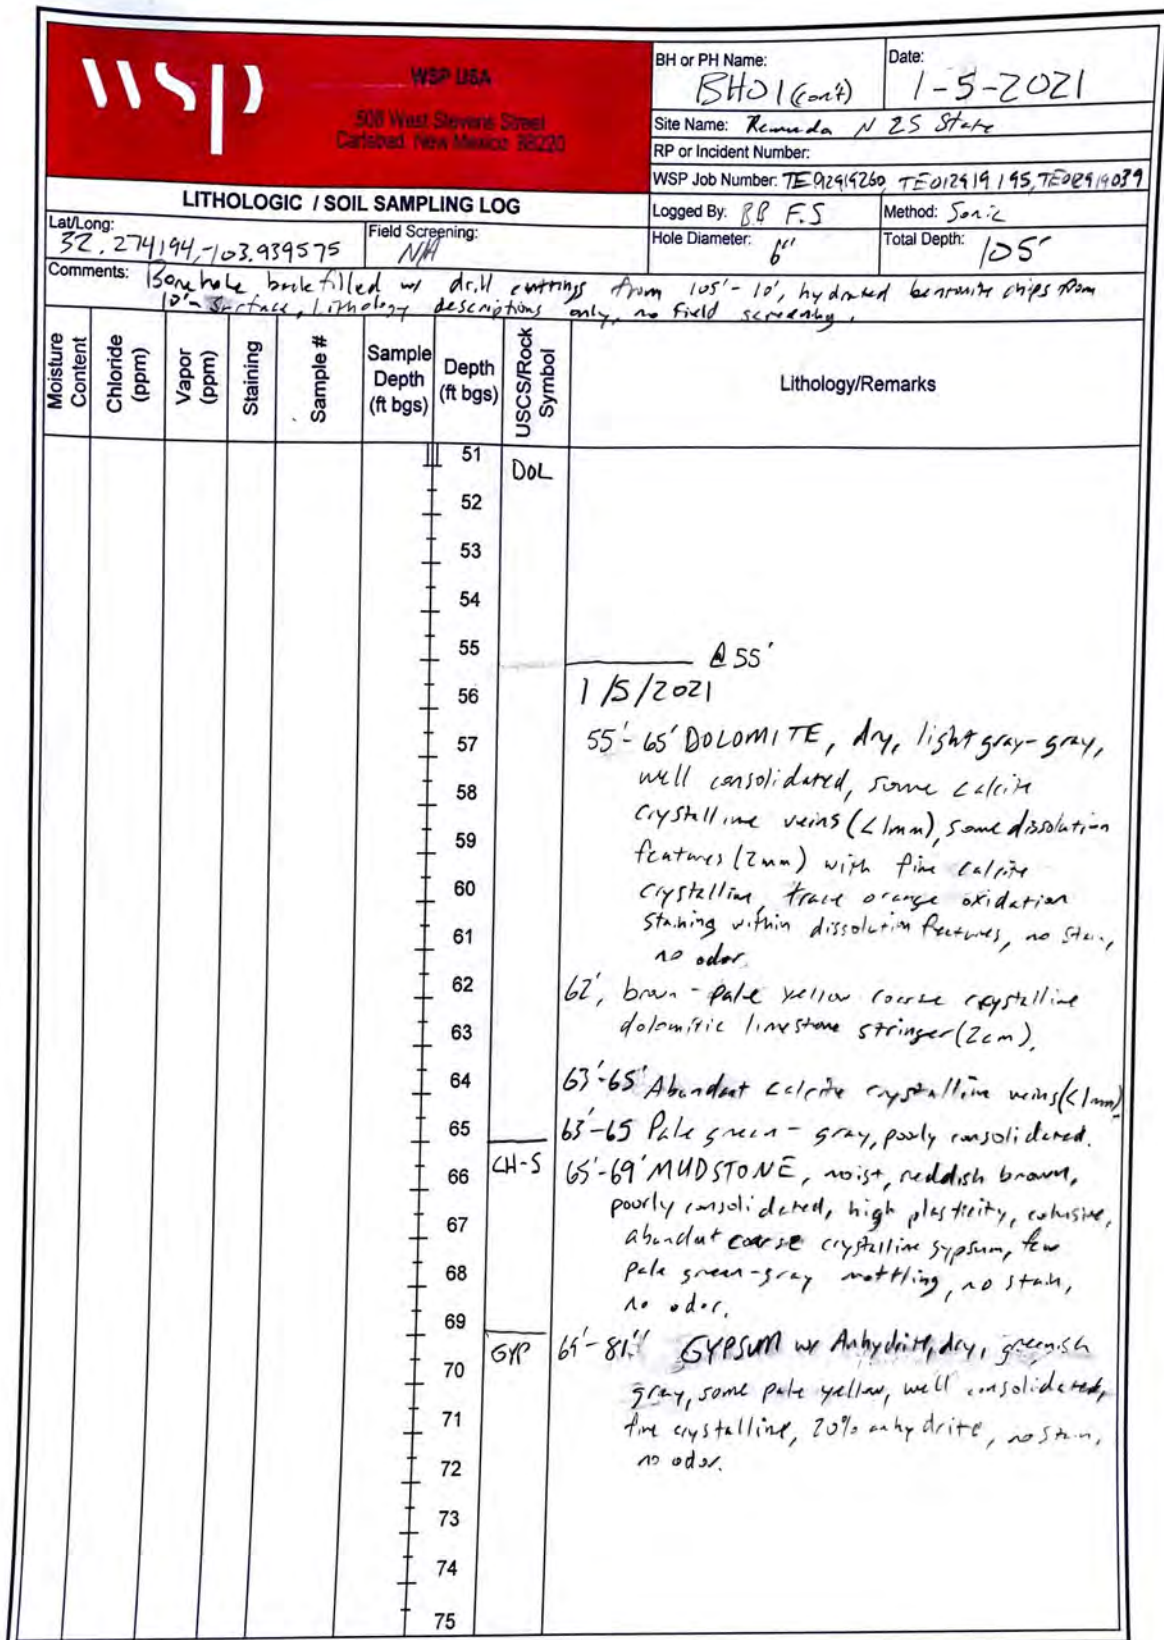 wsp
WSP USA
508 West Stevens Street
Carlsbad, New Mexico 88220
BH or PH Name:
BH01 (con't)
Date:
1-5-2021
Site Name: Remuda N 25 State
RP or Incident Number:
WSP Job Number: TE012919195,
LITHOLOGIC / SOIL SAMPLING LOG
Logged By: BB F.S
Method: Sonic
Lat/Long:
32.274194,-103.939575
Field Screening:
N/A
Hole Diameter:
6"
Total Depth:
105'
Comments: Borehole backfilled w/ drill cuttings from 105'-10', hydrated bentonite chips from
10'- Surface, Lithology descriptions only, no field screening.
Moisture Content
Chloride (ppm)
Vapor (ppm)
Staining
Sample #
Sample Depth (ft bgs)
Depth (ft bgs)
USCS/Rock Symbol
Lithology/Remarks
51 DOL
52
53
54
55
@ 55'
56 1/5/2021
57 55'-65' DOLOMITE, dry, light gray-gray,
well consolidated, some calcite
58
crystalline veins (<1mm), some dissolution
59
features (2mm) with fine calcite
60
crystalline, trace orange oxidation
staining within dissolution features, no stain,
61
no odor.
62 62', brown - pale yellow coarse crystalline
dolomitic limestone stringer (2cm).
63
64 63'-65' Abundant calcite crystalline veins (<1mm)
65 63'-65 Pale green - gray, poorly consolidated.
66 CH-S 65'-69' MUDSTONE, moist, reddish brown,
poorly consolidated, high plasticity, cohesive,
67
abundant coarse crystalline gypsum, few
68 pale green-gray mottling, no stain,
no odor.
69
70 GYP 69'-81' GYPSUM w/ Anhydrite, dry, greenish
gray, some pale yellow, well consolidated,
71 fine crystalline, 20% anhydrite, no stain,
72 no odor.
73
74
75